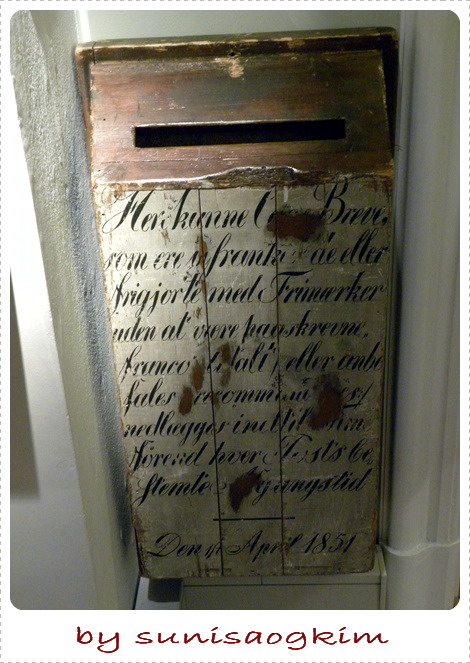 Her kunne Breve,
som ere ufrankerede eller
frigjorte med Frimærker
uden at være paaskrevne,
franco eller anbe
fales recommand
nedlægges indtil
förend hver Posts be
stemte Afgangstid
Den April 1851
by sunisaogkim